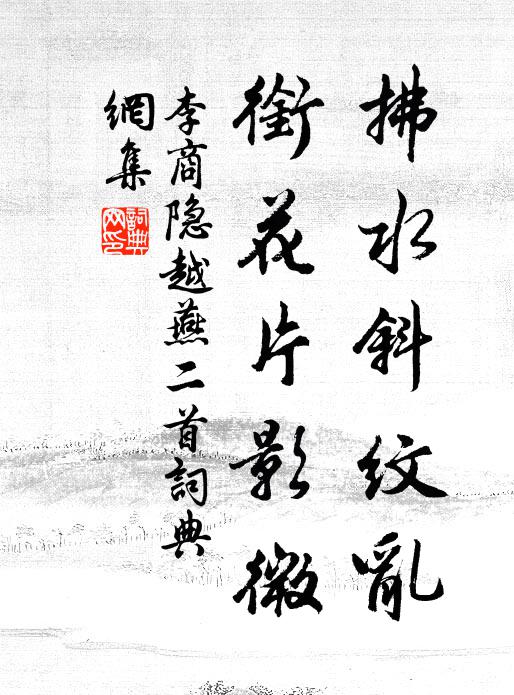 拂水斜纹亂
銜花片影微
李商隐越燕二首詞典
網集
詞典网印